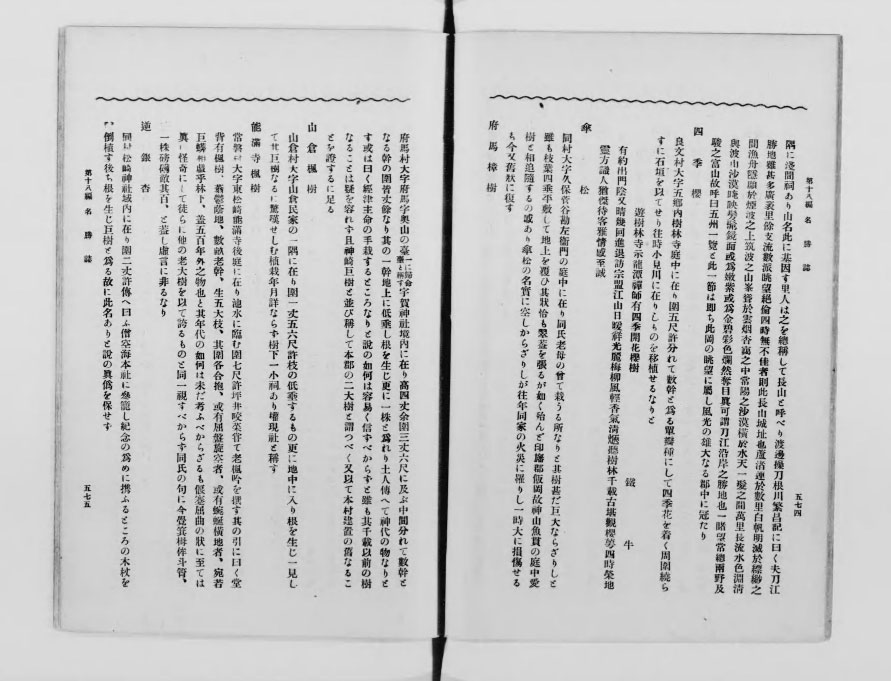 第十八編 名勝誌
五七四
隅に淺間祠あり山名此に基因す里人は之を總稱して長山と呼べり渡邊操刀根川繁昌記に曰く夫刀江
勝地雖甚多廣袤里餘支流數派眺望絶倫四時無不佳者則此長山城址也蘆渚連於數里白帆明滅於縹緲之
間漁舟隱顯於煙波之上筑波之山峯聳於雲烟杳靄之中常陽之沙漠横於水天一髮之間萬里長流水色淵淸
與波山沙漠
駿之富山故呼曰五州一覽と此一節は即ち此岡の眺望に屬し風光の雄大なる郡中に冠たり
四季櫻
良文村大字五郷内樹林寺庭中に在り圍五尺許分れて數幹と爲る單瓣種にして四季花を着く周圍繞ら
すに石垣を以てせり往時小見川に在りしものを移植せるなりと
遊樹林寺示龍潭禪師有四季開花櫻樹
鐵牛
有約出門陰又晴幾回進退訪宗盟江山日暖祥光麗梅柳風輕香氣淸
樹林千載古堪觀櫻夢四時榮地
靈方議人猶傑待客雅情感至誠
傘松
同村大字久保菅谷勘左衞門の庭中に在り同氏老母の曾て栽うる所なりと其樹甚だ巨大ならざりしと
雖も枝葉四垂平敷して地上を覆ひ其狀恰も翠蓋を張るが如く殆んど印旛郡飯岡故神山魚貫の庭中愛
樹と相追隨するの感あり傘松の名實に空しからざりしが往年同家の火災に罹りし一時大に損傷せる
も今又舊狀に復す
府馬樟樹
府馬村大字府馬字奧山の臺
宇賀神社境内に在り高四丈余圍三丈六尺に及ぶ中間分れて數幹と
なる幹の圍皆丈餘なり其の一幹地上に低垂し根を生じ更に一株と爲れり土人傳へて神代の物なりと
す或は曰く經津主命の手栽するところなりと說の如何は容易く信すべからずと雖も其千載以前の樹
なることは疑を容れず且神崎巨樹と並び稱して本郡の二大樹と謂つべく又以て本村建置の舊なるこ
とを證するに足る
山倉楓樹
山倉村大字山倉民家の一隅に在り圍一丈五六尺許枝の低垂するもの更に地中に入り根を生じ一見し
て其巨樹なるに驚嘆せしむ植栽年月詳ならず樹下一小祠あり
現社と稱す
能滿寺楓樹
常磐村大字東松崎能滿寺後庭に在り池水に臨む圍七尺許坪井咬菜嘗て老楓吟を撰す其の引に曰く堂
背有楓樹、蓊鬱蔭地、數畝老幹、生五大枝、其圍各合抱、或有屈盤旋
者、或有蜿蜒横地者、宛若
巨蟒
林下、蓋五百年外之物也と其年代の如何は未だ考ふべからざるも偃蹇屈曲の狀に至ては
眞に怪奇にして徒らに他の老大樹を以て誇るものと同一視すべからず同氏の句に今疊
斗管、
一株磅礴敵其百、と蓋し虛言に非るなり
逆銀杏
同村松崎神社域内に在り圍二丈許傳へ曰ふ僧空海本社に參籠し紀念の爲めに携ふるところの木杖を
倒植す後ち根を生じ巨樹と爲る故に此名ありと說の眞僞を保せず
第十八編 名勝誌
五七五